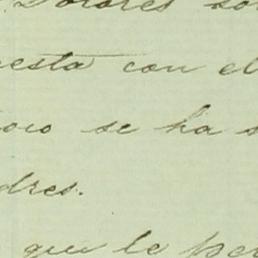 Dolores so
esta con el
oco se ha s
dres.
que le pe